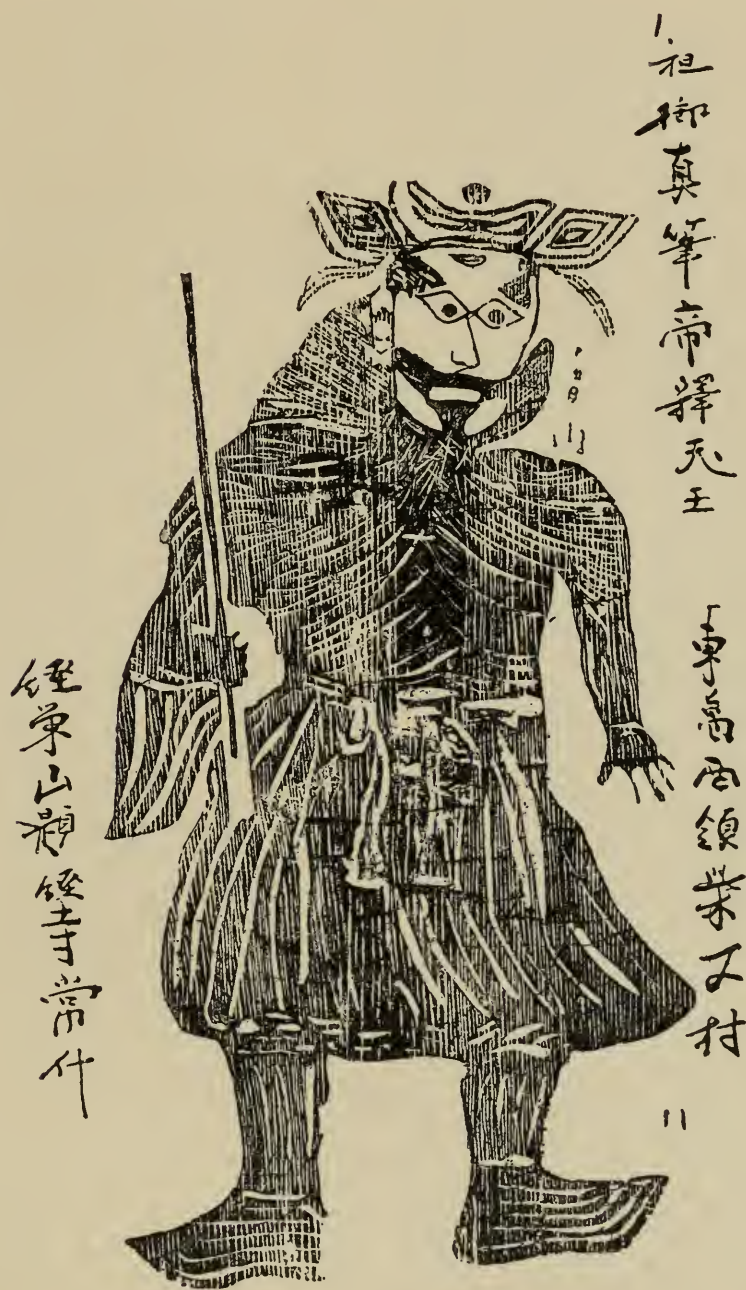 祖御真筆帝釋天王
東葛西領柴又村
經栄山題經寺常什